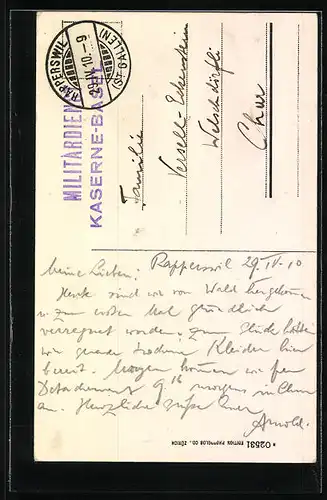 RAPPERSWIL
29.IV.10.-9
(ST GALLEN)
MILITÄRDIEN
KASERNE-BASEL
Familie
Versell-
Welschdörfli
Chur
Rapperswil 29.IV.10
Meine Lieben!
Heute sind wir von Wald hergekommen
u. zum ersten Mal gründlich
verregnet worden; zum Glück hatten
wir gerade trockene Kleider hier
bereit. Morgen kommen wir per
Detachement 9.16 morgens in Chur
an. Herzliche Grüsse Euer
Arnold.
• 02531 EDITION PHOTOGLOB CO., ZÜRICH